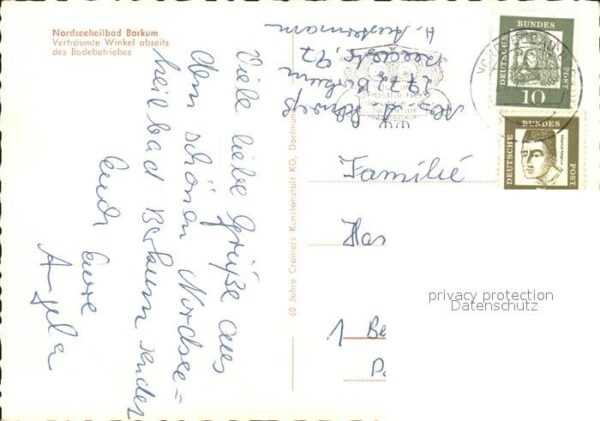 Nordseeheilbad Borkum
Verträumte Winkel abseits
des Badebetriebes
Viele liebe Grüße aus
dem schönen Nordsee=
heilbad Borkum sendet
Euch Eure
Angela
2972 Borkum
60 Jahre Cramers Kunstanstalt KG, Dortmund
DEUTSCHE BUNDES POST
10
DEUTSCHE BUNDES POST
Familie
Han
1 Be
privacy protection
Datenschutz